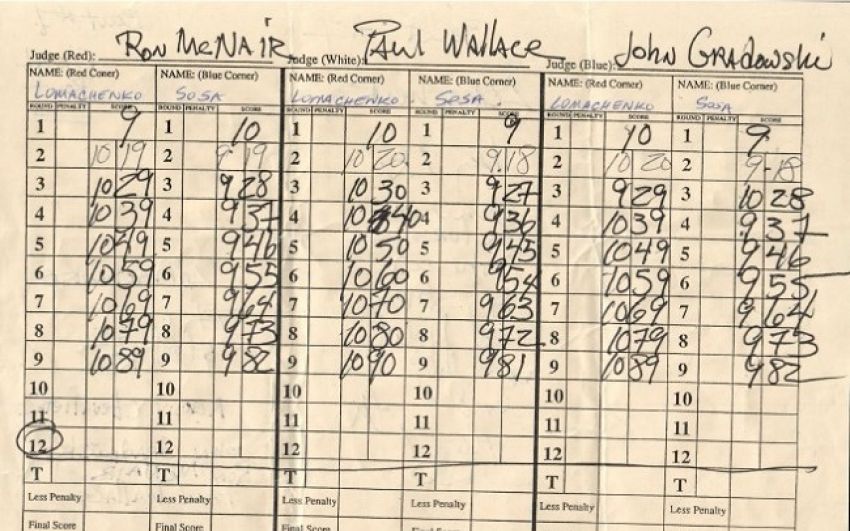 Judge (Red): Ron McNair Judge (White): Paul Wallace Judge (Blue): John Gradowski
NAME: (Red Corner) NAME: (Blue Corner) NAME: (Red Corner) NAME: (Blue Corner) NAME: (Red Corner) NAME: (Blue Corner)
LOMACHENKO SOSA LOMACHENKO SOSA LOMACHENKO SOSA
ROUND PENALTY SCORE ROUND PENALTY SCORE ROUND PENALTY SCORE ROUND PENALTY SCORE ROUND PENALTY SCORE ROUND PENALTY SCORE
1 9 1 10 1 10 1 9 1 10 1 9
2 10 19 2 9 19 2 10 20 2 9.18 2 10 20 2 9-18
3 10 29 3 9 28 3 10 30 3 9 27 3 9 29 3 10 28
4 10 39 4 9 37 4 10 40 4 9 36 4 10 39 4 9 37
5 10 49 5 9 46 5 10 50 5 9 45 5 10 49 5 9 46
6 10 59 6 9 55 6 10 60 6 9 54 6 10 59 6 9 55
7 10 69 7 9 64 7 10 70 7 9 63 7 10 69 7 9 64
8 10 79 8 9 73 8 10 80 8 9 72 8 10 79 8 9 73
9 10 89 9 9 82 9 10 90 9 9 81 9 10 89 9 9 82
10 10 10 10 10 10
11 11 11 11 11 11
12 12 12 12 12 12
T T T T T T
Less Penalty Less Penalty Less Penalty Less Penalty Less Penalty Less Penalty
Final Score Final Score Final Score Final Score Final Score Final Score